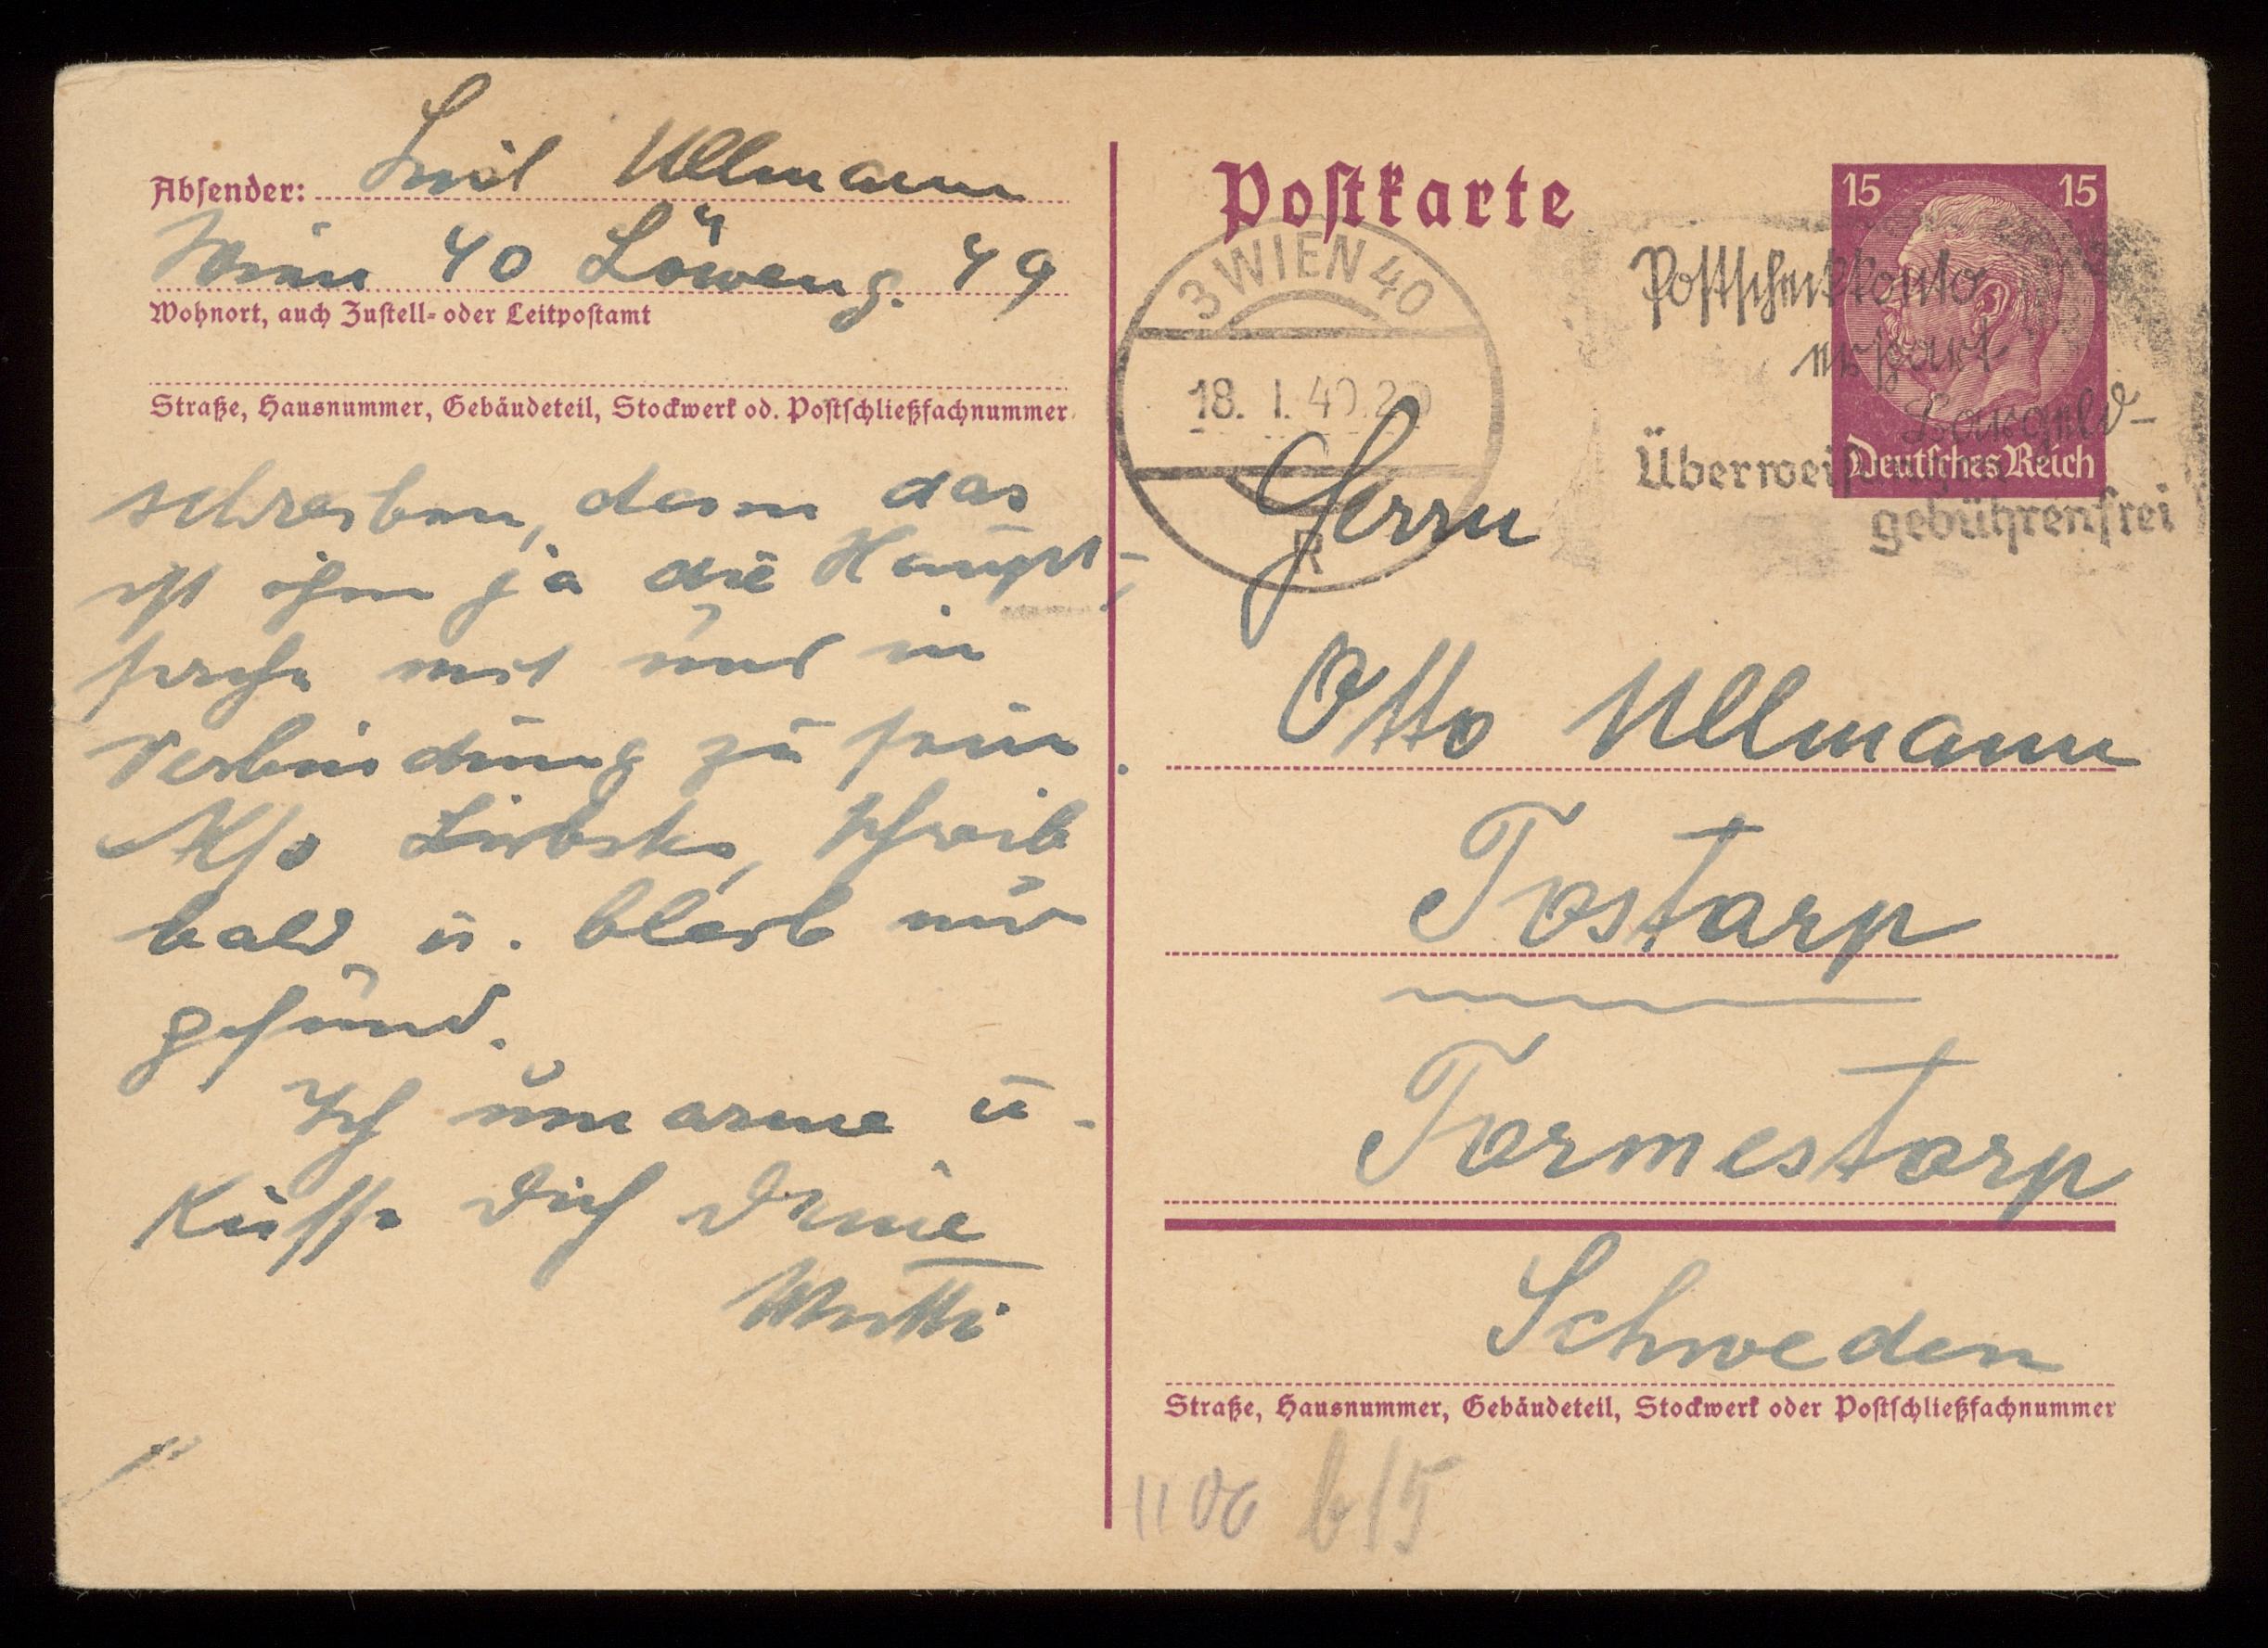 Absender: Emil Ullmann
Wien 40 Löweng. 49
Wohnort, auch Zustell- oder Leitpostamt
Straße, Hausnummer, Gebäudeteil, Stockwerk od. Postschließfachnummer
schreiben, denn das
ist ihm ja die Haupt-
sache mit uns in
Verbindung zu sein.
Also Liebstes, schreib
bald u. bleib mir
gesund.
Ich umarme u.
Küsse Dich Deine
Mutti
Postkarte
15 15
Deutsches Reich
3 WIEN 40
18. I. 40. 20
R
Postscheckkonto
erspart
Bargeld-
Überweisungen
gebührenfrei
Herrn
Otto Ullmann
Tostarp
Tormestorp
Schweden
Straße, Hausnummer, Gebäudeteil, Stockwerk oder Postschließfachnummer